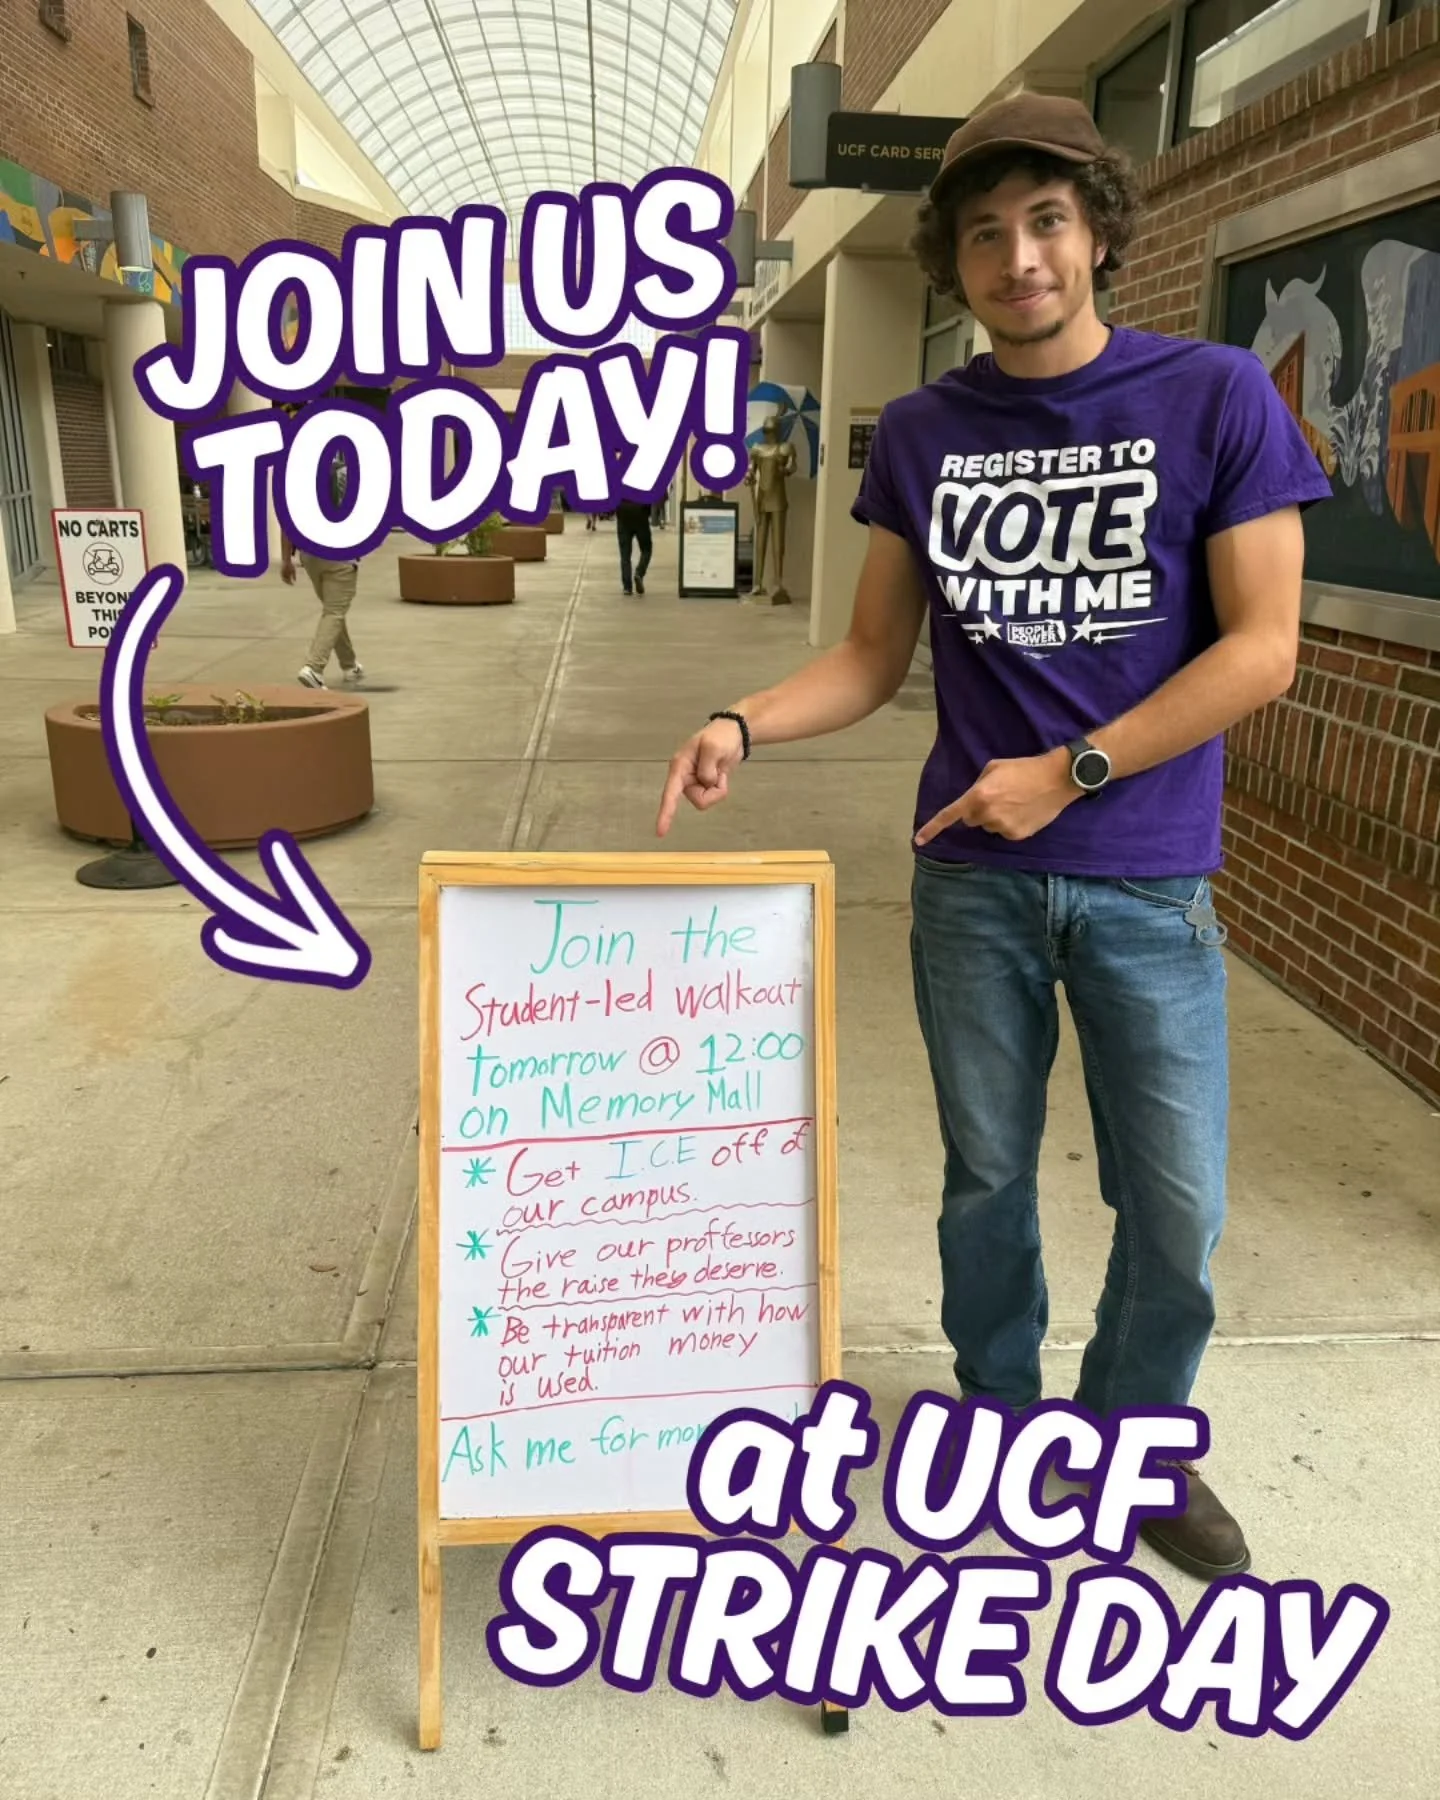 UCF CARD SER
JOIN US
TODAY!
REGISTER TO
VOTE
WITH ME
PEOPLE
POWER
NO CARTS
BEYON
THIS
PO
Join the
Student-led walkout
tomorrow @ 12:00
on Memory Mall
* Get I.C.E off of
our campus.
* Give our proffessors
the raise they deserve.
* Be transparent with how
our tuition money
is used.
Ask me for mor
at UCF
STRIKE DAY